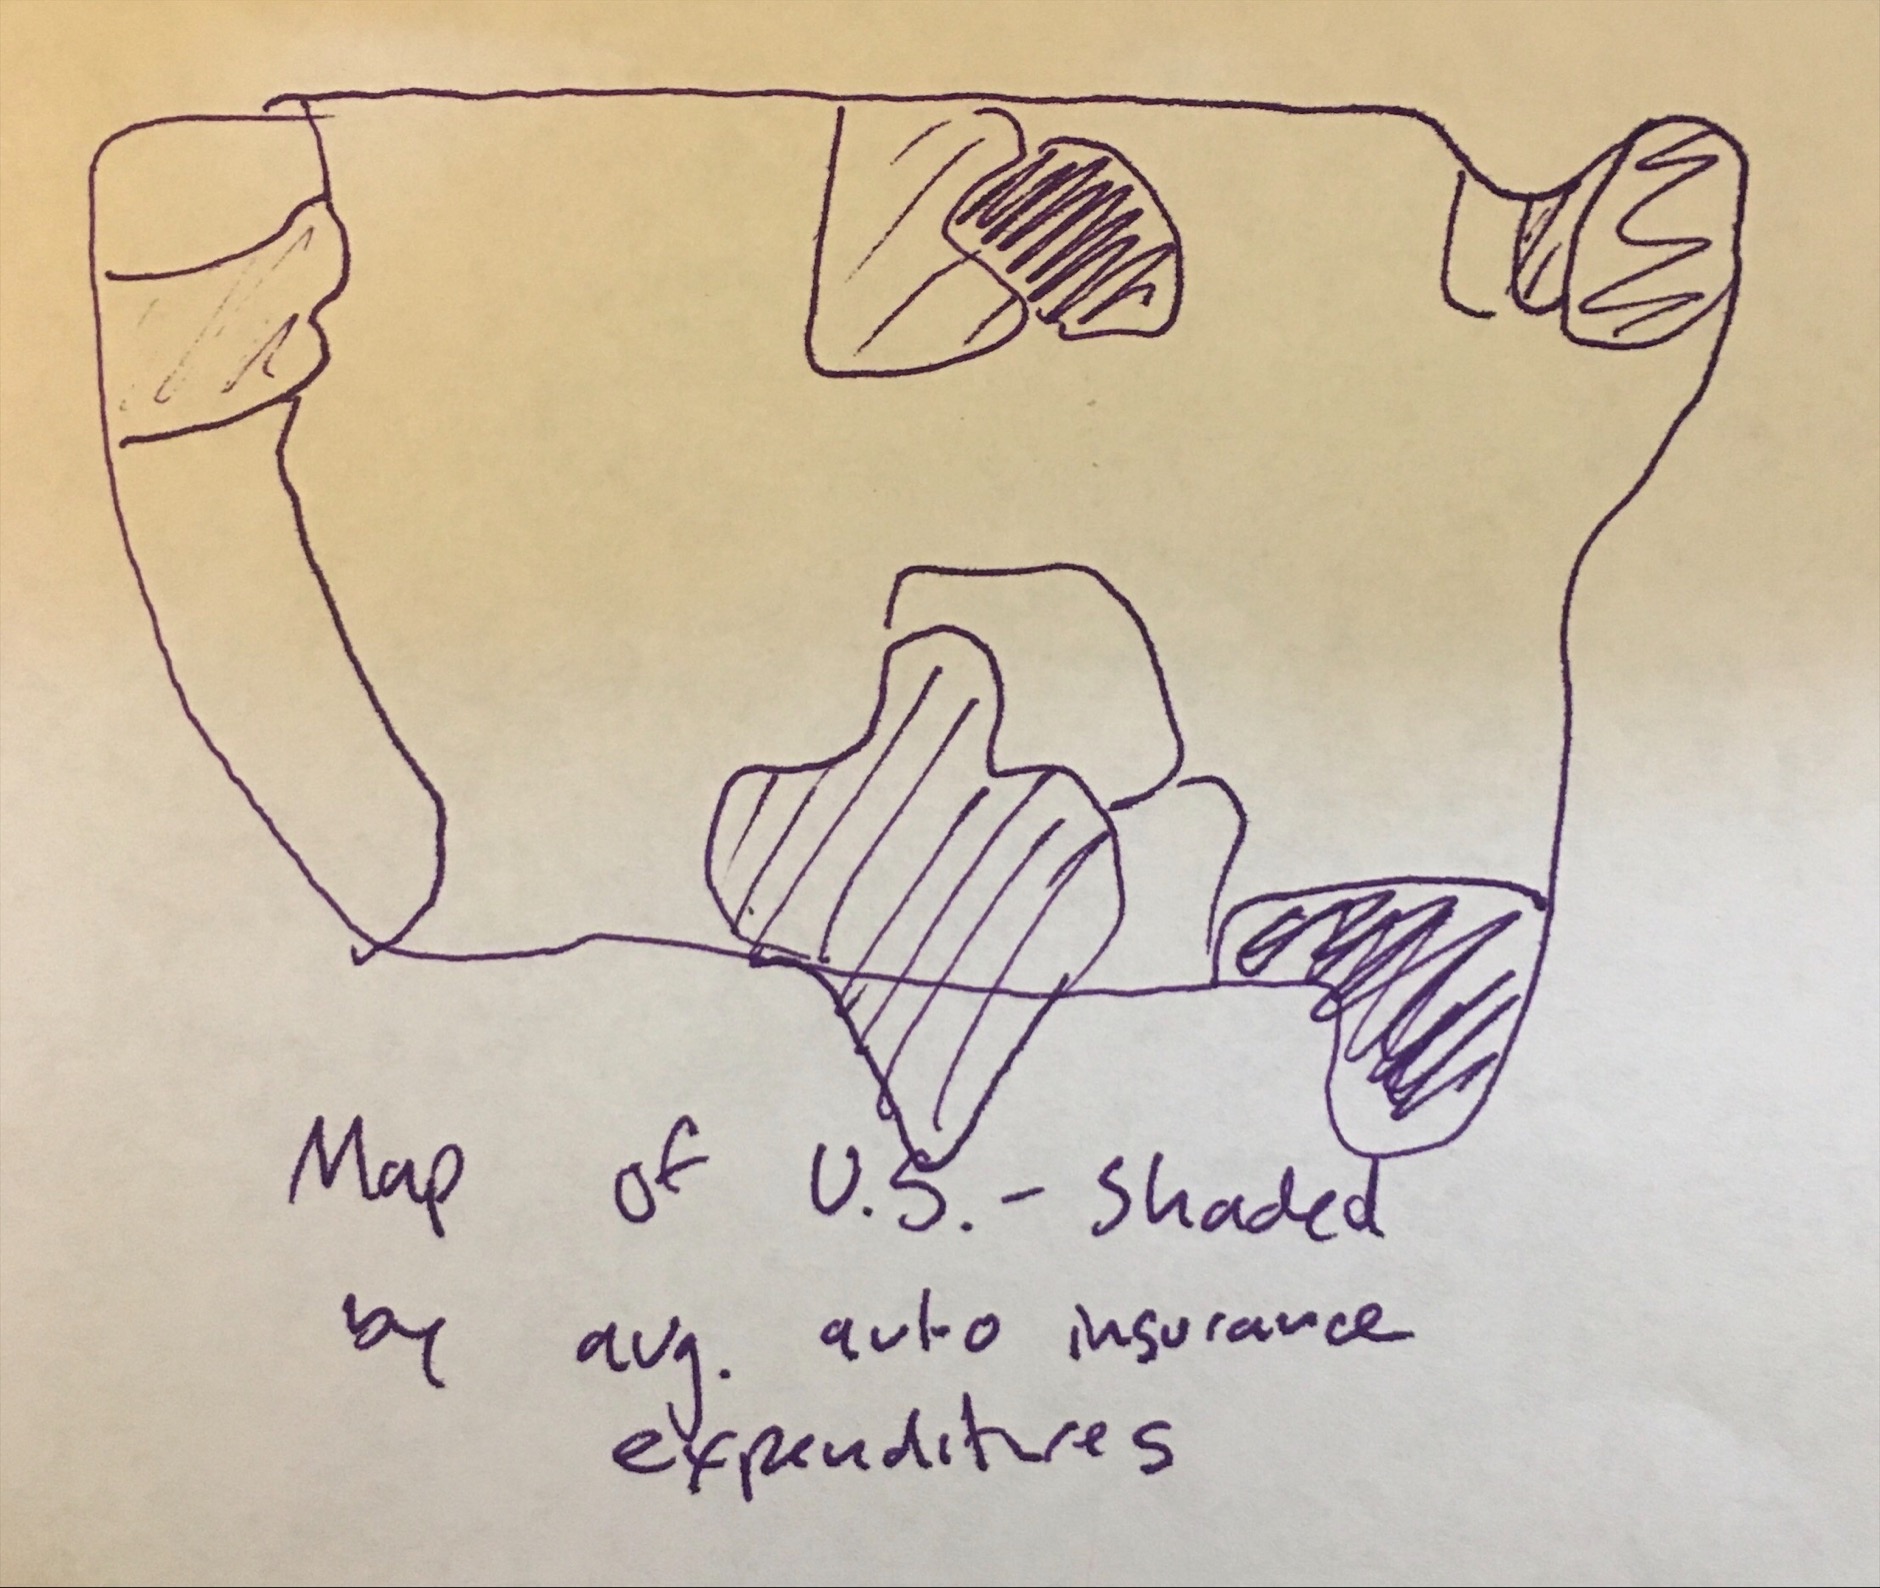 Map of U.S. - shaded
by avg. auto insurance
expenditures